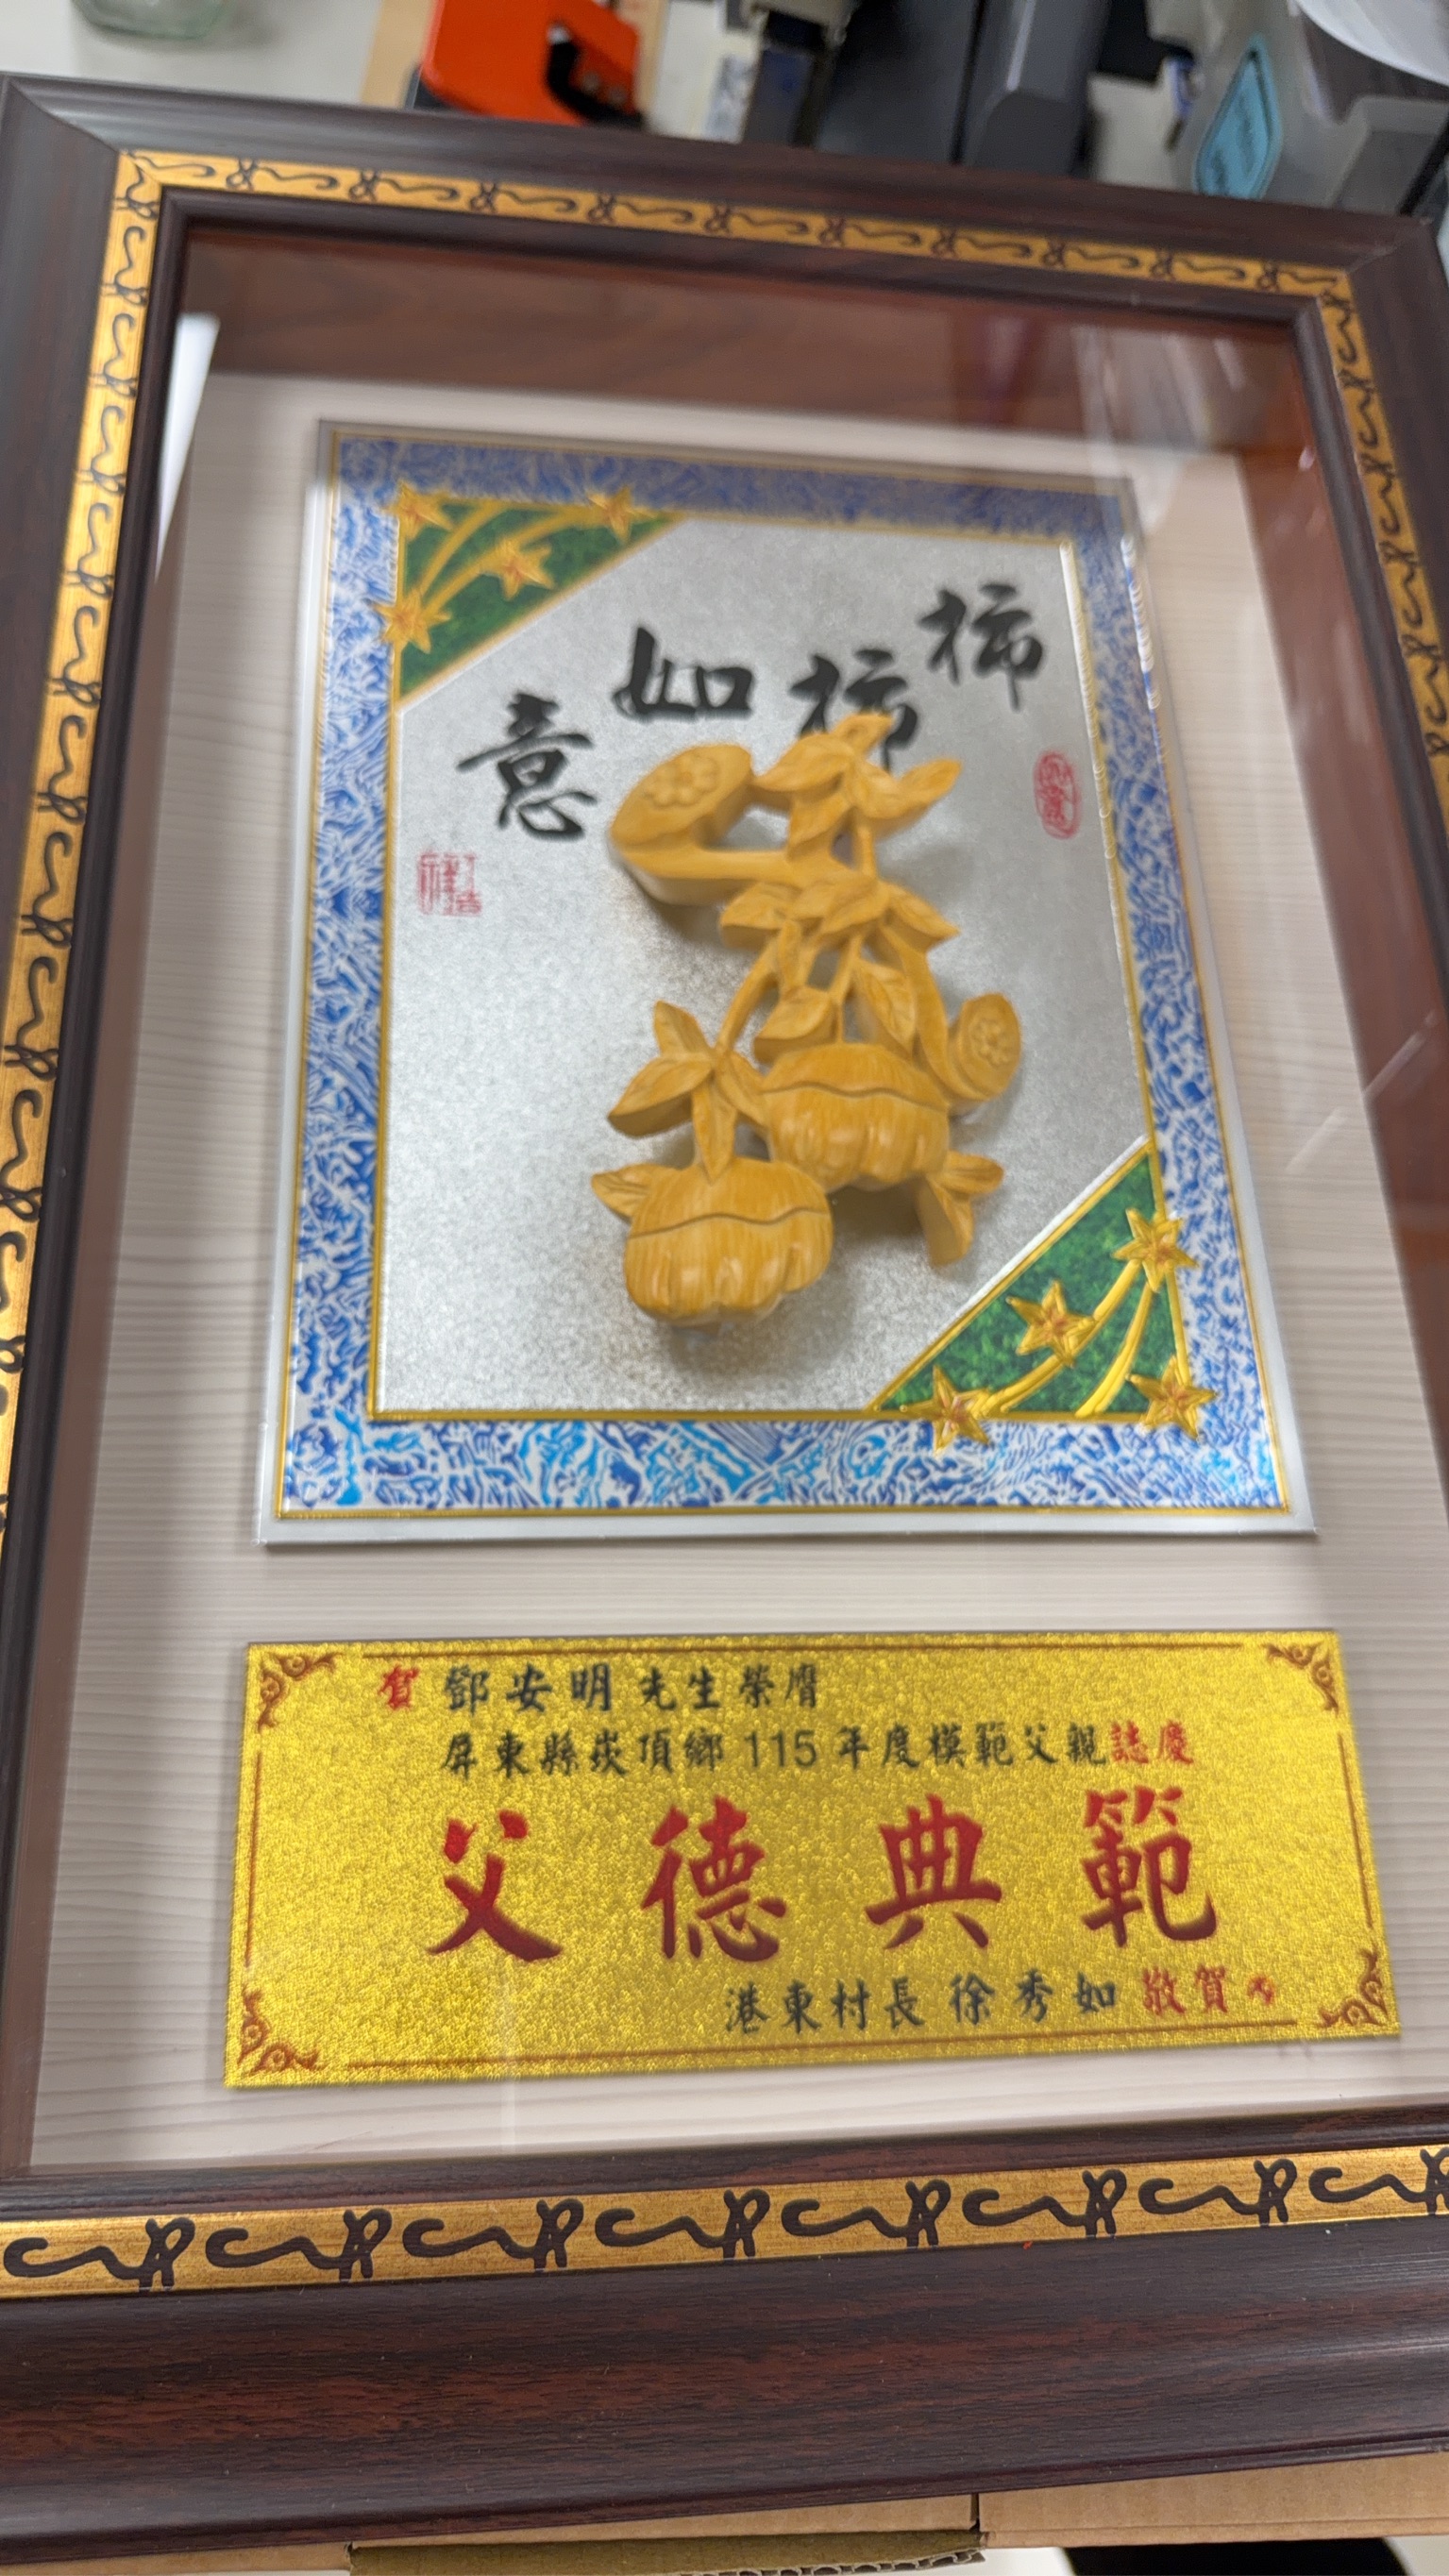 柿柿如意
賀 鄧安明 先生榮膺
屏東縣崁頂鄉 115 年度模範父親誌慶
父德典範
港東村長 徐秀如 敬賀